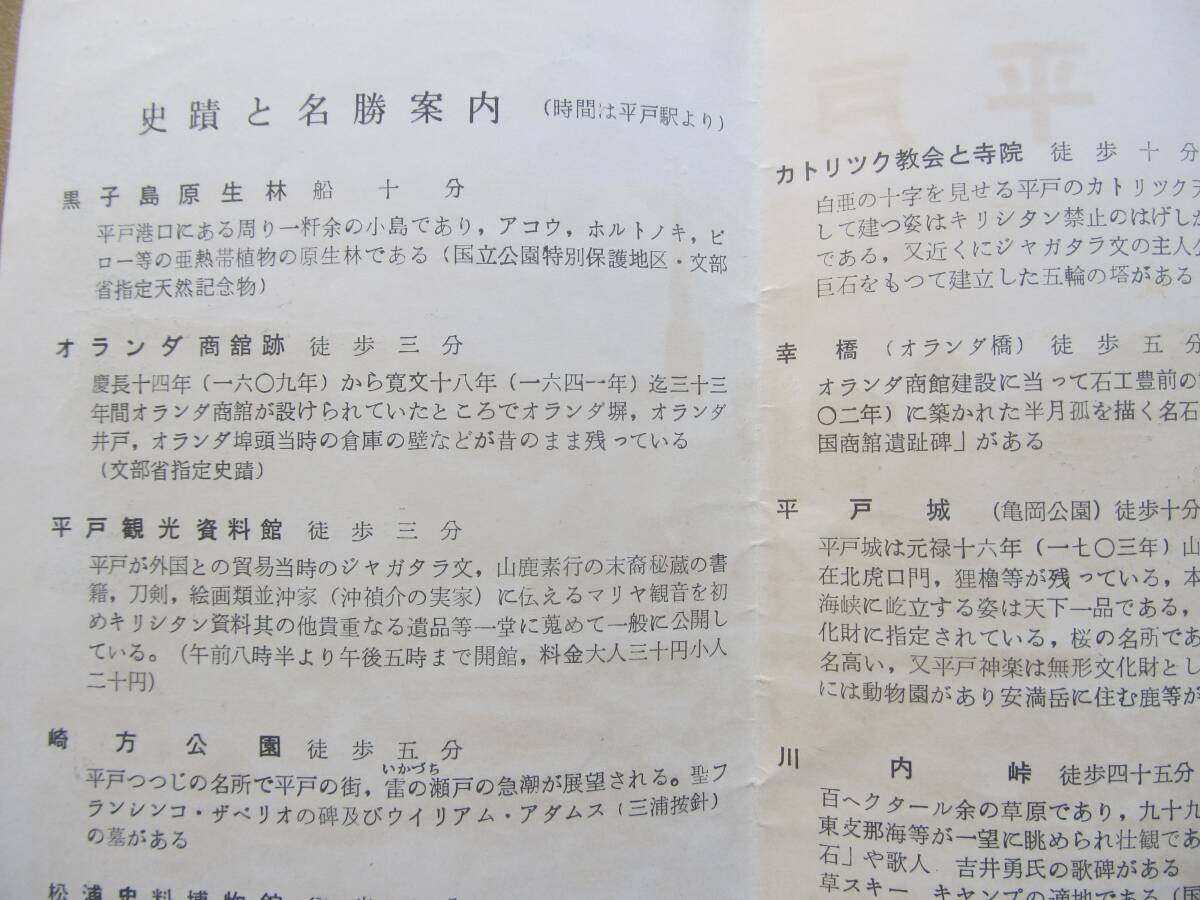 史蹟と名勝案内 (時間は平戸駅より)
黒子島原生林 船十分
平戸港口にある周り一粁余の小島であり，アコウ，ホルトノキ，ビ
ロー等の亜熱帯植物の原生林である (国立公園特別保護地区・文部
省指定天然記念物)
オランダ商舘跡 徒歩三分
慶長十四年 (一六〇九年) から寛文十八年 (一六四一年) 迄三十三
年間オランダ商舘が設けられていたところでオランダ塀，オランダ
井戸，オランダ埠頭当時の倉庫の壁などが昔のまま残っている
(文部省指定史蹟)
平戸観光資料館 徒歩三分
平戸が外国との貿易当時のジャガタラ文，山鹿素行の末裔秘蔵の書
籍，刀剣，絵画類並沖家 (沖禎介の実家) に伝えるマリヤ観音を初
めキリシタン資料其の他貴重なる遺品等一堂に蒐めて一般に公開し
ている。(午前八時半より午後五時まで開館，料金大人三十円小人
二十円)
崎方公園 徒歩五分
平戸つつじの名所で平戸の街，雷の瀬戸の急潮が展望される。聖フ
いかづち
ランシンコ・ザベリオの碑及びウイリアム・アダムス (三浦按針)
の墓がある
松浦史料博物館
平戸
カトリツク教会と寺院 徒歩十分
白亜の十字を見せる平戸のカトリツク天
して建つ姿はキリシタン禁止のはげしか
である，又近くにジャガタラ文の主人公
巨石をもつて建立した五輪の塔がある
幸橋 (オランダ橋) 徒歩五分
オランダ商館建設に当って石工豊前の
〇二年) に築かれた半月孤を描く名石
国商舘遺趾碑」がある
平戸城 (亀岡公園) 徒歩十分
平戸城は元禄十六年 (一七〇三年) 山
在北虎口門，狸櫓等が残っている，本
海峡に屹立する姿は天下一品である，
化財に指定されている，桜の名所であ
名高い，又平戸神楽は無形文化財とし
には動物園があり安満岳に住む鹿等が
川内峠 徒歩四十五分
百ヘクタール余の草原であり，九十九
東支那海等が一望に眺められ壮観であ
石」や歌人 吉井勇氏の歌碑がある
草スキー キャンプの適地である (国